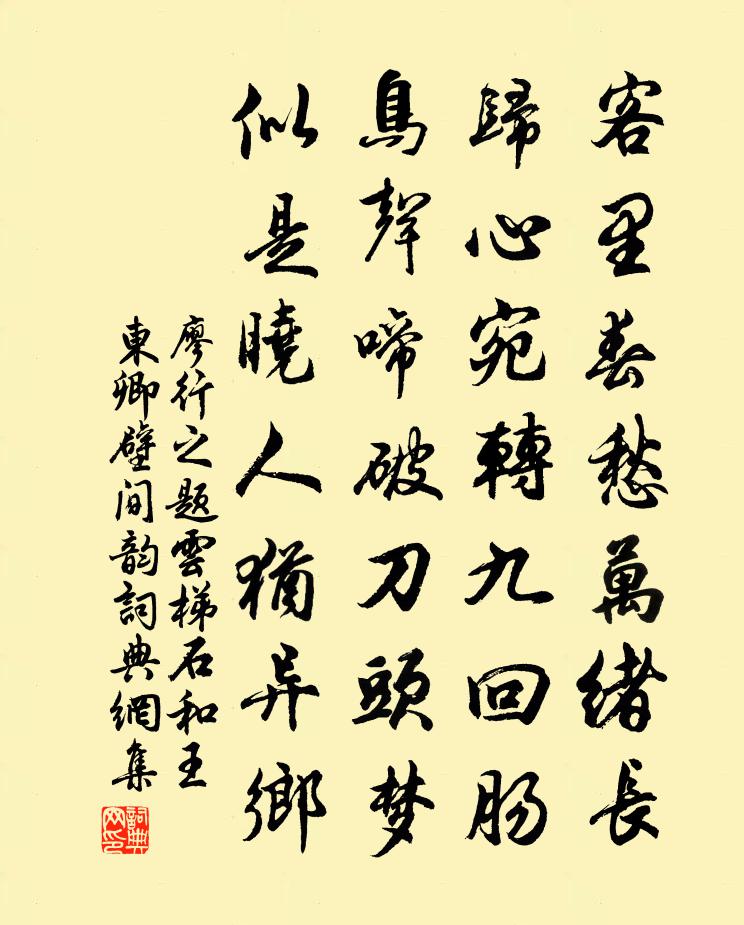 客里春愁萬緒長
歸心宛轉九回肠
鳥聲啼破刀頭梦
似是曉人猶异鄉
廖行之題雲梯石和王
東卿壁間韵詞典網集
詞典
网印